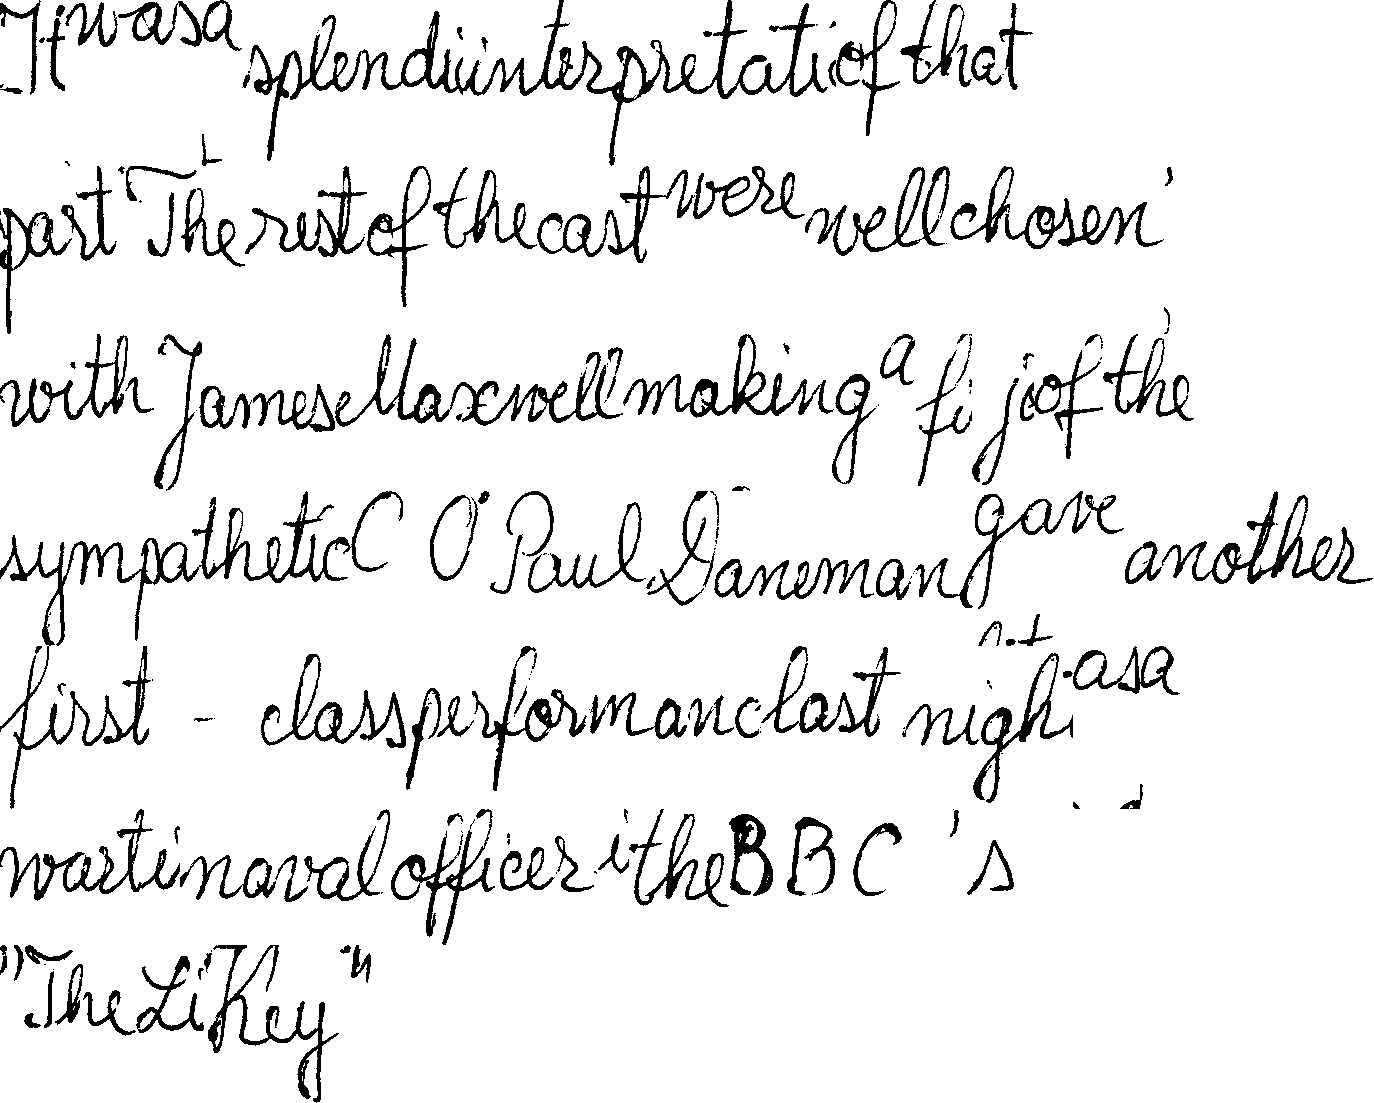 It was a splendi interpretati of that
part. The rest of the cast were well chosen,
with James Maxwell making a fi j of the
sympathetic C O. Paul Daneman gave another
first - class performanc last night as a
warti naval officer i the BBC 's
"The Li Key"